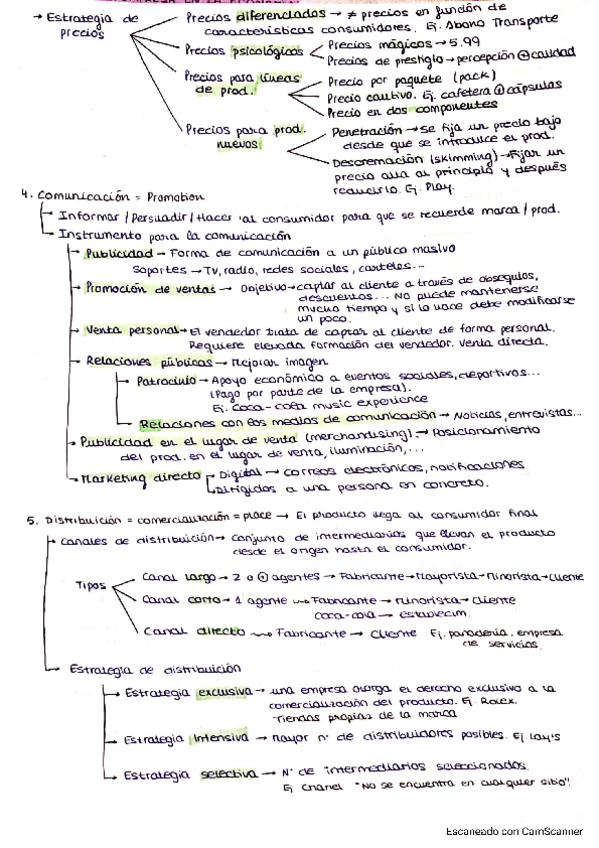 → Estrategia de precios
Precios diferenciados → ≠ precios en función de
características consumidores. Ej. Abono Transporte
Precios psicológicos
Precios mágicos → 5.99
Precios de prestigio → percepción ⊕ calidad
Precios para líneas
de prod.
Precio por paquete (pack)
Precio cautivo. Ej. cafetera ⊕ cápsulas
Precio en dos componentes
Precios para prod.
nuevos
Penetración → se fija un precio bajo
desde que se introduce el prod.
Descremación (skimming) → Fijar un
precio alto al principio y después
reducirlo. Ej. Play.
4. Comunicación = Promotion
Informar / Persuadir / Hacer al consumidor para que se recuerde marca / prod.
Instrumento para la comunicación
Publicidad → Forma de comunicación a un público masivo
Soportes → TV, radio, redes sociales, carteles...
Promoción de ventas → Objetivo → captar al cliente a través de obsequios,
descuentos... No puede mantenerse
mucho tiempo y si lo hace debe modificarse
un poco.
Venta personal → El vendedor trata de captar al cliente de forma personal.
Requiere elevada formación del vendedor. Venta directa.
Relaciones públicas → Mejorar imagen
Patrocinio → Apoyo económico a eventos sociales, deportivos...
(Pago por parte de la empresa).
Ej. Coca-cola music experience
Relaciones con los medios de comunicación → Noticias, entrevistas...
Publicidad en el lugar de venta (merchandising). → Posicionamiento
del prod. en el lugar de venta, iluminación, ...
Marketing directo
Digital → Correos electrónicos, notificaciones
Dirigidos a una persona en concreto.
5. Distribuición = comercialización = place → El producto llega al consumidor final
Canales de distribuición → Conjunto de intermediarios que llevan el producto
desde el origen hasta el consumidor.
Tipos
Canal largo → 2 o ⊕ agentes → Fabricante → Mayorista → Minorista → Cliente
Canal corto → 1 agente → Fabricante → Minorista → Cliente
Coca-cola → establecim.
Canal directo → Fabricante → Cliente Ej. panadería. empresa
de servicios.
Estrategia de distribuición
Estrategia exclusiva → una empresa otorga el derecho exclusivo a la
comercialización del producto. Ej. Rolex.
Tiendas propias de la marca
Estrategia Intensiva → Mayor nº de distribuidores posibles. Ej. Lay's
Estrategia selectiva → Nº de intermediarios seleccionados.
Ej Chanel "No se encuentra en cualquier sitio".
Escaneado con CamScanner